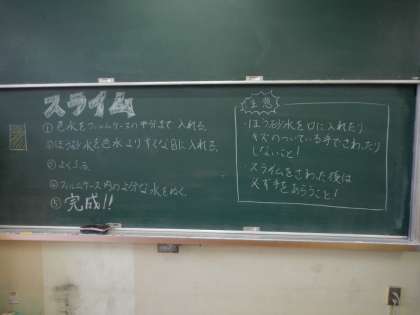 スライム
① 色水をフィルムケースの半分まで入れる。
② ほう砂水を色水よりすくな目に入れる。
③ よくふる。
④ フィルムケース内の余分な水をぬく。
⑤ 完成!!
注意
・ほう砂水を口に入れたり
キズのついている手でさわたり
しないこと!
・スライムをさわた後は
必ず手をあらうこと!